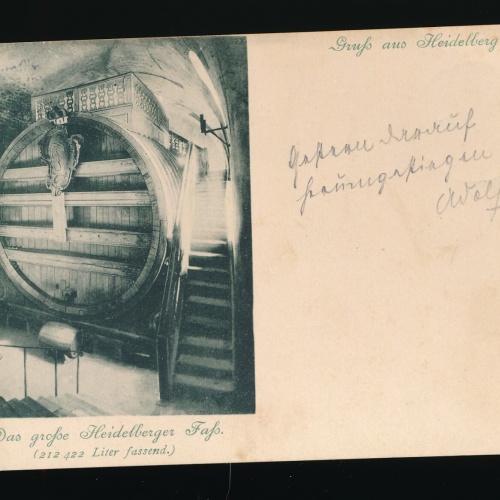 Gruß aus Heidelberg
Gestern darauf
herumgestiegen
Adolf
Das große Heidelberger Faß.
(212 422 Liter fassend.)